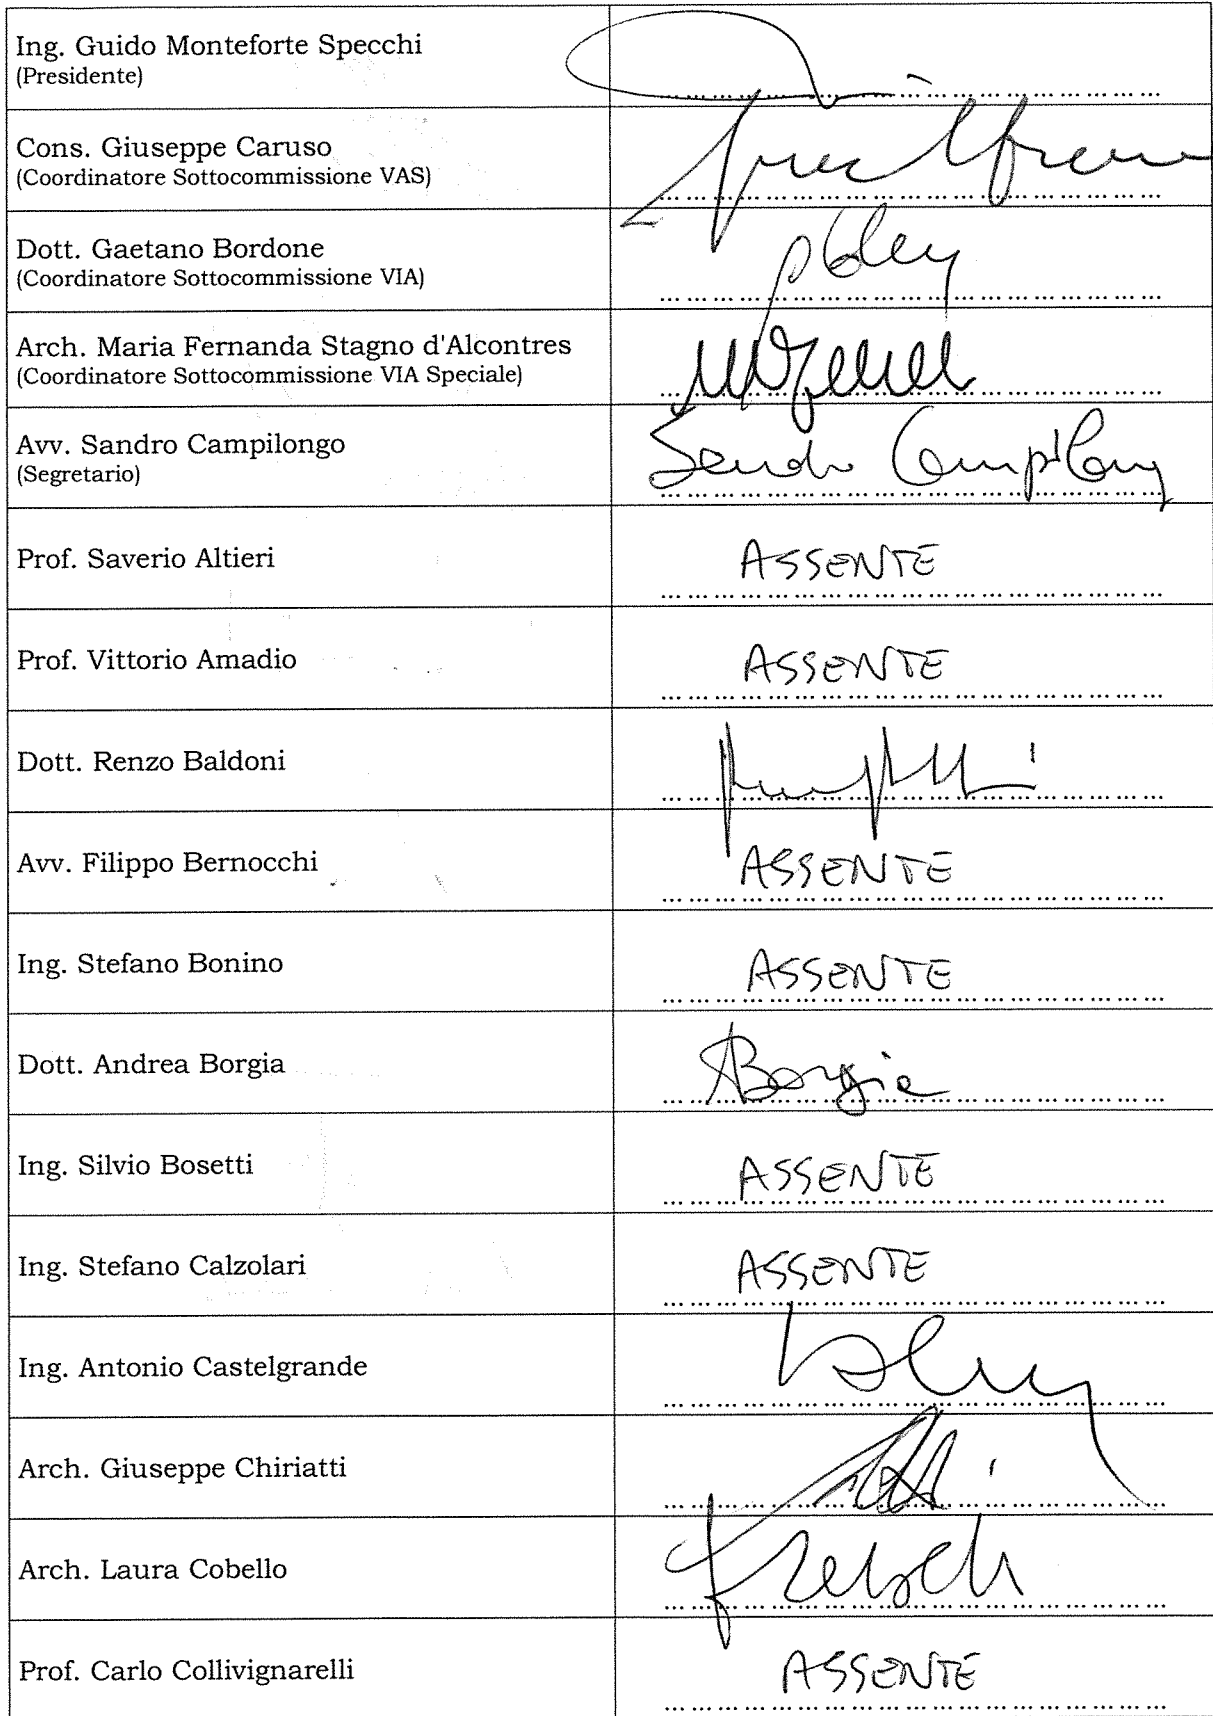 Ing. Guido Monteforte Specchi
(Presidente)
Cons. Giuseppe Caruso
(Coordinatore Sottocommissione VAS)
Dott. Gaetano Bordone
(Coordinatore Sottocommissione VIA)
Arch. Maria Fernanda Stagno d'Alcontres
(Coordinatore Sottocommissione VIA Speciale)
Avv. Sandro Campilongo
(Segretario)
Prof. Saverio Altieri
ASSENTE
Prof. Vittorio Amadio
ASSENTE
Dott. Renzo Baldoni
Avv. Filippo Bernocchi
ASSENTE
Ing. Stefano Bonino
ASSENTE
Dott. Andrea Borgia
ABorgia
Ing. Silvio Bosetti
ASSENTE
Ing. Stefano Calzolari
ASSENTE
Ing. Antonio Castelgrande
Arch. Giuseppe Chiriatti
Arch. Laura Cobello
Prof. Carlo Collivignarelli
ASSENTE